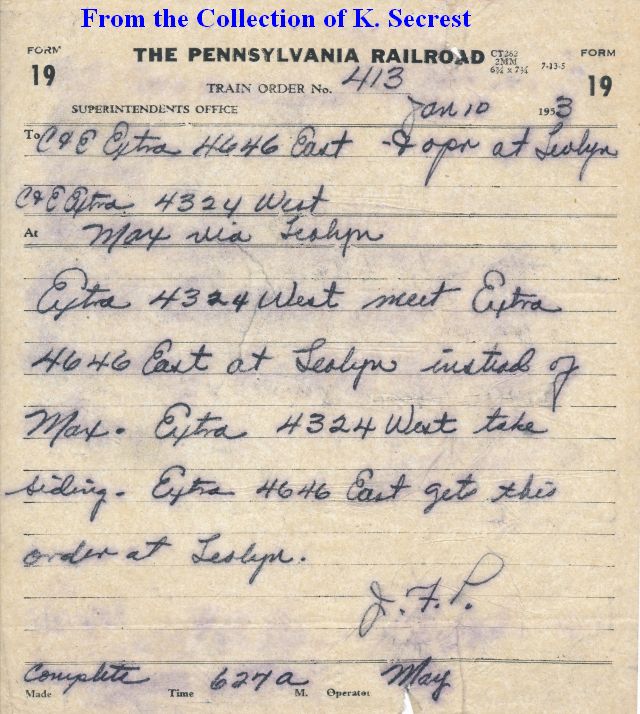 From the Collection of K. Secrest
FORM 19
THE PENNSYLVANIA RAILROAD
CT262
2MM
6¾ x 7¾
7-13-5
FORM 19
TRAIN ORDER No. 413
SUPERINTENDENTS OFFICE Jan 10 1953
To C&E Extra 4646 East - & opr at Leolyn
C&E Extra 4324 West
At Max via Leolyn
Extra 4324 West meet Extra
4646 East at Leolyn instead of
Max. Extra 4324 West take
siding. Extra 4646 East gets this
order at Leolyn.
J. F. P.
Complete 627 a May
Made Time M. Operator